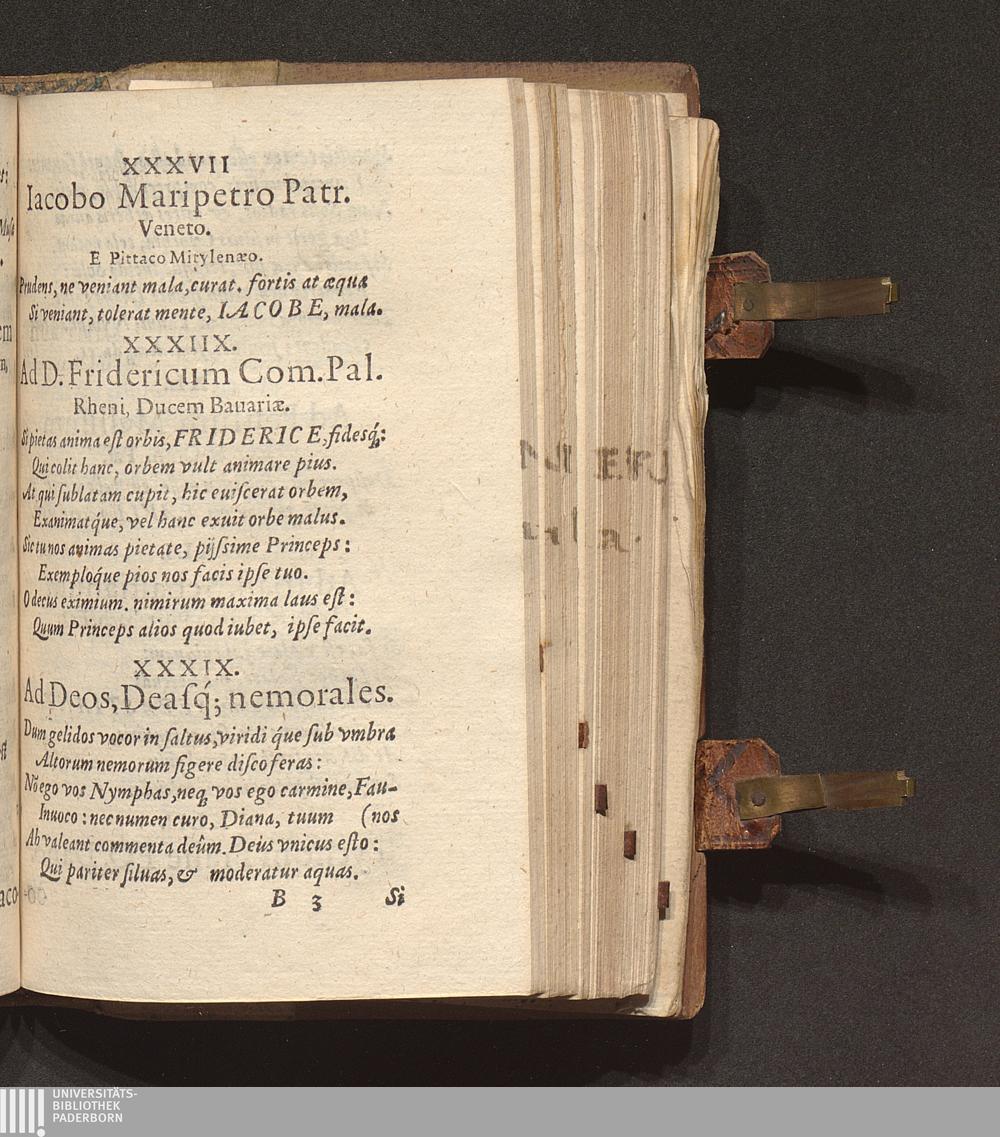 XXXVII
Iacobo Maripetro Patr.
Veneto.
E Pittaco Mitylenæo.
Prudens, ne veniant mala, curat. fortis at æqua
Si veniant, tolerat mente, IACOBE, mala.
XXXIIX.
Ad D. Fridericum Com. Pal.
Rheni, Ducem Bauariæ.
Si pietas anima eſt orbis, FRIDERICE, fidesq́;:
Qui colit hanc, orbem vult animare pius.
At qui ſublatam cupit, hic euiſcerat orbem,
Exanimatq́ue, vel hanc exuit orbe malus.
Sic tu nos animas pietate, pijſsime Princeps:
Exemploq́ue pios nos facis ipſe tuo.
O decus eximium. nimirum maxima laus eſt:
Quum Princeps alios quod iubet, ipſe facit.
XXXIX.
Ad Deos, Deaſq́; nemorales.
Dum gelidos vocor in ſaltus, viridi q́ue ſub vmbra
Altorum nemorum figere diſco feras:
Nõ ego vos Nymphas, neq; vos ego carmine, Fau-
Inuoco: nec numen curo, Diana, tuum (nos
Ah valeant commenta deûm. Deus vnicus eſto:
Qui pariter ſiluas, & moderatur aquas.
B 3 Si
UNIVERSITÄTS-
BIBLIOTHEK
PADERBORN